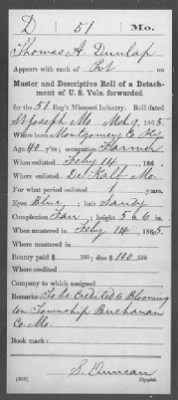 D 51 Mo.
Thomas A. Dunlap
Appears with rank of Pvt on
Muster and Descriptive Roll of a Detach-
ment of U. S. Vols. forwarded
for the 51 Reg't Missouri Infantry. Roll dated
St Joseph Mo. Mch 9, 1865
Where born Montgomery Co Ky
Age 40 y'rs; occupation Farmer
When enlisted Feby 14, 1865.
Where enlisted De Kalb Mo.
For what period enlisted 1 years.
Eyes Blue; hair Sandy
Complexion Fair; height 5 ft. 6 in.
When mustered in Feby 14, 1865
Where mustered in
Bounty paid $ 100; due $ 100
Where credited
Company to which assigned
Remarks: To be Credited to Blooming
ton Township Buchanan
Co. Mo.
Book mark:
S. Duncan
Copyist.